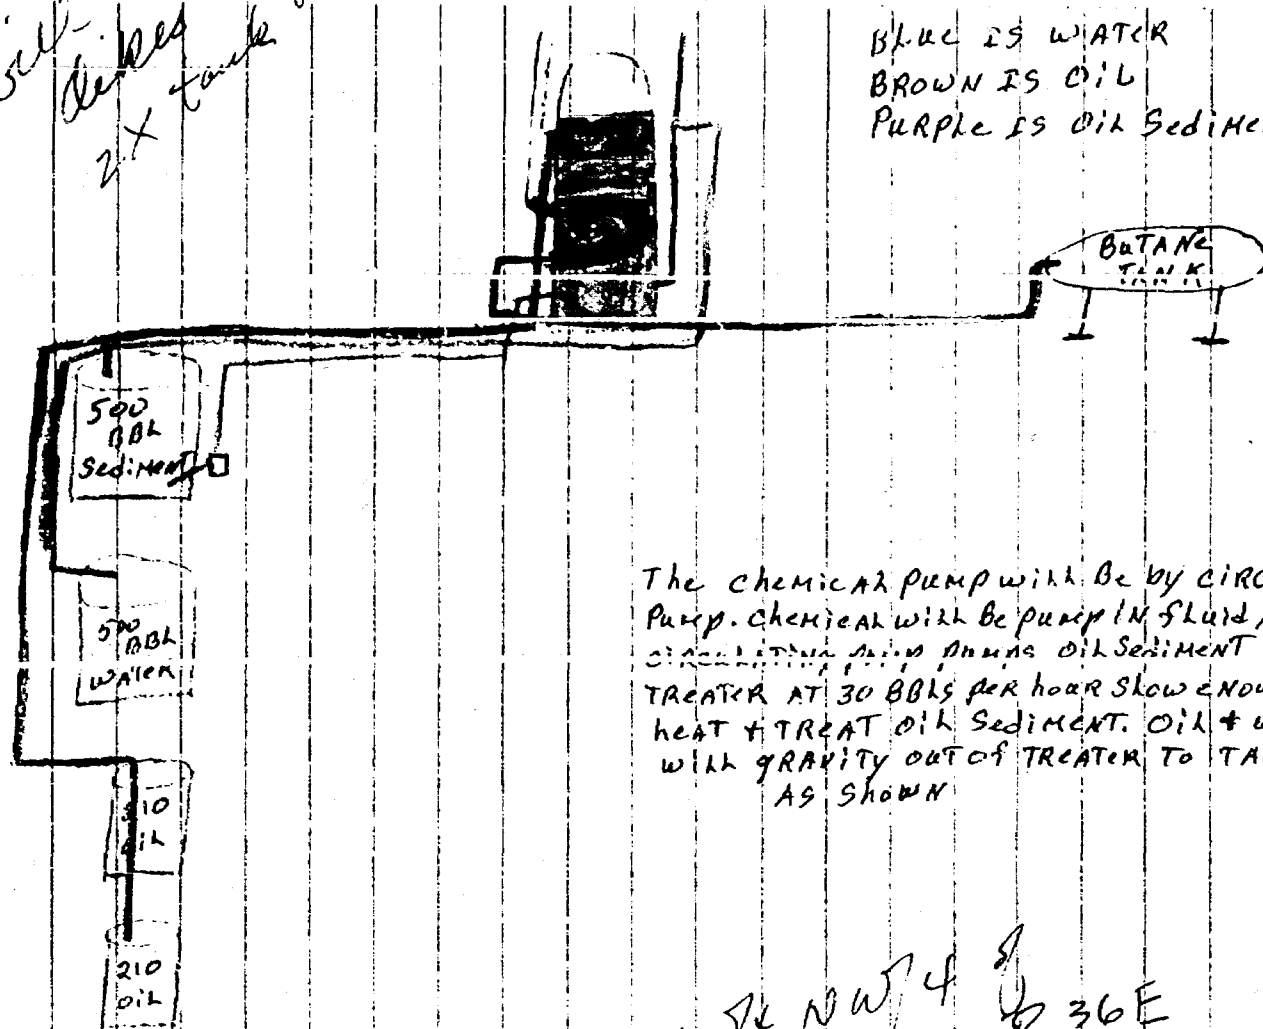 dikes
2 X tank
BLUE IS WATER
BROWN IS OiL
PURPLE IS OiL SediMe
BUTANE
TANK
500
BBL
SediMenT
500
BBL
WATER
10
iL
210
OiL
The CheMicAL PuMP wiLL Be by CiRC
PuMp. CheMicAL wiLL Be puMp IN fLuid
CiRCULATiNg puMp PuMps OiL SediMENT
TREATER AT 30 BBLs per hour SLow eNou
heAT + TREAT OiL SediMENT. OiL + w
wiLL gRAViTy ouT of TREATER To TA
AS ShowN
NW/4
36E